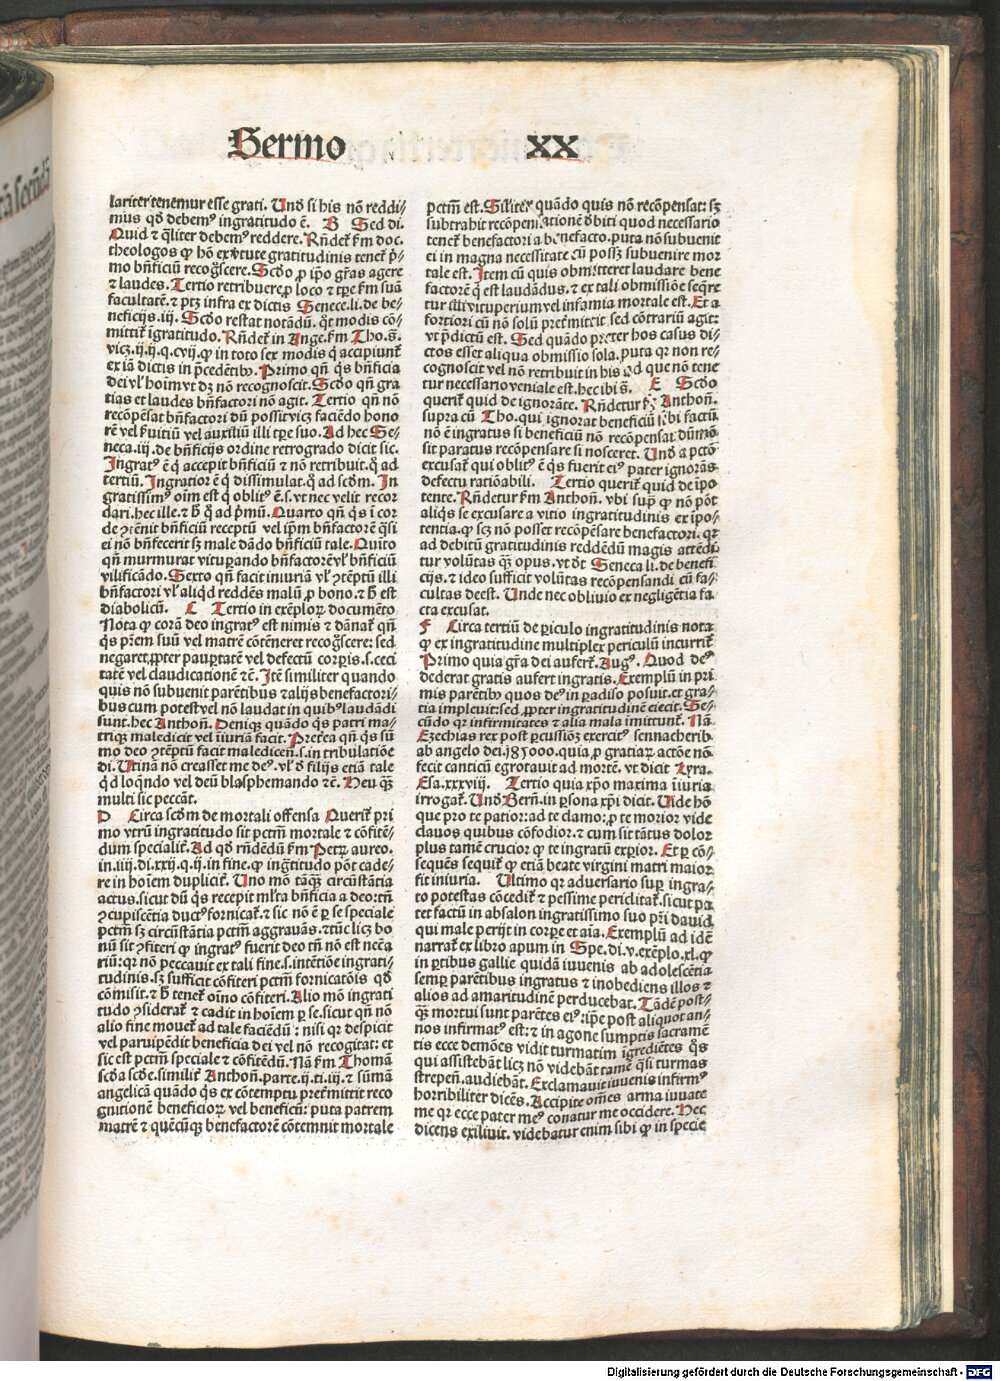 Sermo XX
lariter tenemur esse grati. Unď si his nō reddi⸗
mus qď debemꝰ ingratitudo ē. B Sed di.
Quid ⁊ q̄liter debemꝰ reddere. Rn̄det̄ ẜm doc.
theologos ꝙ hō ex v̓tute gratitudinis tenet̄ p̄⸗
mo bn̄ficiū recogͦscere. Scďo ꝓ ip̄o gr̄as agere
⁊ laudes. Tertio retribuere ꝓ loco ⁊ tꝑe ẜm suā
facultatē. ⁊ ptꝫ infra ex dictis Senece. li. de be⸗
neficijs. iij. Scďo restat notādū. qͦt modis cō⸗
mittit̄ īgratitudo. Rn̄det̄ in Ange. ẜm Tho. ſ.
vicꝫ. ij. ij. q. cvij. ꝙ in toto sex modis q̄ accipiunt̄
ex iā dictis in p̄cedētibꝰ. Primo qn̄ qͥs bn̄ficia
dei vl̓ hoīm vt dꝫ nō recognoscit. Scďo qn̄ gra
tias et laudes bn̄factori nō agit. Tertio qn̄ nō
recōpēsat bn̄factori dū possit vicꝫ faciēdo hono
rē vel ẜuitiū vel auxiliū illi tꝑe suo. Ad hec Se⸗
neca. iij. de bn̄ficijs ordine retrogrado dicit sic.
Ingratꝰ ē qͥ accepit bn̄ficiū ⁊ nō retribuit. qͦ ad
tertiū. Ingratior ē qͥ dissimulat. qͦ ad scďm. In
gratissimꝰ oīm est qͥ oblitꝰ ē. s. vt nec velit recor
dari. hec ille. ⁊ h̄ qͦ ad p̓mū. Quarto qn̄ qͥs ī cor
de ↄ̨tēnit bn̄ficiū receptū vel ip̄m bn̄factorē q̄si
ei nō bn̄fecerit sꝫ male dādo bn̄ficiū tale. Quīto
qn̄ murmurat vituꝑando bn̄factorē vl̓ bn̄ficiū
vilificādo. Sexto qn̄ facit iniuriā vl̓ ↄ̨tēptū illi
bn̄factori vl̓ aliqď reddēs malū ꝓ bono. ⁊ h̄ est
diabolicū. C Tertio in exēploꝝ documēto
Nota ꝙ corā deo ingratꝰ est nimis ⁊ dānat̄ qn̄
qͥs pr̄em suū vel matrē cōtēneret recogͦscere: sed
negaret ꝓpter pauꝑtatē vel defectū corꝑis. s. ceci
tatē vel claudicationē ⁊c̄. Itē similiter quando
quis nō subuenit parētibus ⁊ alijs benefactori⸗
bus cum potest vel nō laudat in quibꝰ laudādi
sunt. hec Anthoñ. Deniqꝫ quādo qͥs patri ma⸗
triqꝫ maledicit vel īiuriā facit. Preterea qn̄ qͥs sū
mo deo ↄ̨tēptū facit maledicen̄. s. in tribulatiōe
di. Utinā nō creasset me deꝰ. vl̓ ꝺ̓ filijs etiā tale
qď loqn̄do vel deū blasphemando ⁊c̄. Heu qꝫ̄
multi sic peccāt.
D Circa scďm de mortali offensa Querit̄ pri
mo vtrū ingratitudo sit pctm̄ mortale ⁊ cōfitē⸗
dum specialit̓. Ad qď rn̄dēdū ẜm Petꝝ aureo.
in. iiij. di. xxij. q. ij. in fine. ꝙ ingͣtitudo pōt cade⸗
re in hoīem duplicit̓. Uno mō tāqꝫ̄ circūstātia
actus. sicut dū qͥs recepit ml̓ta bn̄ficia a deo: tn̄
ↄ̨cupiscētia ductꝰ fornicat̄. ⁊ sic nō ē ꝑ se speciale
pctm̄ sꝫ circūstātia pctm̄ aggrauās. ⁊ tūc licꝫ bo
nū sit ↄ̨fiteri ꝙ ingratꝰ fuerit deo tn̄ nō est necēa
riū: qꝛ nō peccauit ex tali fine. s. intētiōe ingrati⸗
tudinis. sꝫ sufficit cōfiteri pctm̄ fornicatōis qď
cōmisit. ⁊ h̄ tenet̄ oīno cōfiteri. Alio mō ingrati
tudo ↄ̨siderat̄ ⁊ cadit in hoīem ꝑ se. sicut qn̄ nō
alio fine mouet̄ ad tale faciēdū: nisi qꝛ despicit
vel paruipēdit beneficia dei vel nō recogitat: et
sic est pctm̄ speciale ⁊ cōfitēdū. Nā ẜm Thomā
scďa scďe. similit̓ Anthoñ. parte. ij. ti. iij. ⁊ sūmā
angelicā quādo qͥs ex cōtemptu pret̓mittit reco
gnitionē beneficioꝝ vel beneficū: puta patrem
matrē ⁊ quēcūqꝫ benefactorē cōtemnit mortale
pctm̄ est. Silit̓er quādo quis nō recōpensat: sꝫ
subtrahit recōpensationē ďbiti quod necessario
tenet̄ benefactori a benefacto. puta nō subuenit
ei in magna necessitate cū possꝫ subuenire mor
tale est. Item cū quis obmitteret laudare bene
factorē qͥ est laudādus. ⁊ ex tali obmissiōe seq̄re
tur illi vituperium vel infamia mortale est. Et a
fortiori cū nō solū pret̓mittit sed cōtrariū agit:
vt p̄dictū est. Sed quādo preter hos casus di⸗
ctos esset aliqua obmissio sola. puta qꝛ non re⸗
cognoscit vel nō retribuit in his ad que nō tene
tur necessario veniale est. hec ibi ſ. E Scďo
querit̄ quid de ignorāte. Rn̄detur ẜm Anthoñ.
supra cū Tho. qui ignorat beneficiū sibi factū
nō ē ingratus si beneficiū nō recōpensat dūmō
sit paratus recōpensare si nosceret. Unď a pctō
excusat̄ qui oblitꝰ ē qͥs fuerit eiꝰ pater ignorās
defectu ratiōabili. Tertio querit̄ quid de īpo
tente. Rn̄detur ẜm Anthoñ. vbi supͣ ꝙ nō pōt
aliqͥs se excusare a vitio ingratitudinis ex īpo⸗
tentia. ꝙ scꝫ nō posset recōpēsare benefactori. qꝛ
ad debitū gratitudinis reddēdū magis attēdi
tur volūtas qꝫ̄ opus. vt ďt Seneca li. de benefi
cijs. ⁊ ideo sufficit volūtas recōpensandi cū fa⸗
cultas deest. Unde nec obliuio ex negligētia fa
cta excusat.
F Circa tertiū de ꝑiculo ingratitudinis nota
ꝙ ex ingratitudine multiplex periculū incurrit̄.
Primo quia gr̄a dei aufert̄. Augꝰ. Quod deꝰ
dederat gratis aufert ingratis. Exemplū in pri
mis parētibꝰ quos deꝰ in ꝑadiso posuit. et gra⸗
tia impleuit: sed ꝓpter ingratitudinē eiecit. Se⸗
cūdo qꝛ infirmitates ⁊ alia mala imittunt̄. Nā
Ezechias rex post ꝑcussiōꝫ exercitꝰ sennacherib
ab angelo dei. 185000. quia ꝓ gratiaꝝ actōe nō
fecit canticū egrotauit ad mortē. vt dicit Lyra.
Esa. xxxviij. Tertio quia xp̄o maxima īiuria
irrogat̄. Unď Berñ. in ꝑsona xp̄i dicit. Uide hō
que pro te patior: ad te clamo: ꝓ te morior vide
clauos quibus cōfodior. ⁊ cum sit tātus dolor
plus tamē crucior ꝙ te ingratū exꝑior. Et ꝑ cō⸗
sequēs sequit̄ ꝙ etiā beate virgini matri maior
fit iniuria. Ultimo qꝛ aduersario suꝑ ingra⸗
to potestas cōcedit̄ ⁊ pessime periclitat̄. sicut pa
tet factū in absalon ingratissimo suo pr̄i dauid
qui male perijt in corꝑe et aīa. Exemplū ad idē
narrat̄ ex libro apum in Spe. di. v. exēplo. xl. ꝙ
in ꝑtibus gallie quidā iuuenis ab adolescētia
semꝑ parētibus ingratus ⁊ inobediens illos ⁊
alios ad amaritudinē perducebat. Tādē post⸗
qꝫ̄ mortui sunt parētes eiꝰ: ip̄e post aliquot an⸗
nos infirmatꝰ est: ⁊ in agone sumptis sacramē
tis ecce demōes vidit turmatim īgrediētes qͦs
qui assistebāt licꝫ nō videbāt tamē q̄si turmas
strepen̄. audiebāt. Exclamauit iuuenis infirmꝰ
horribiliter dicēs. Accipite om̄es arma iuuate
me qꝛ ecce pater meꝰ conatur me occidere. Hec
dicens exiliuit. videbatur enim sibi ꝙ in specie
Digitalisierung gefördert durch die Deutsche Forschungsgemeinschaft - DFG